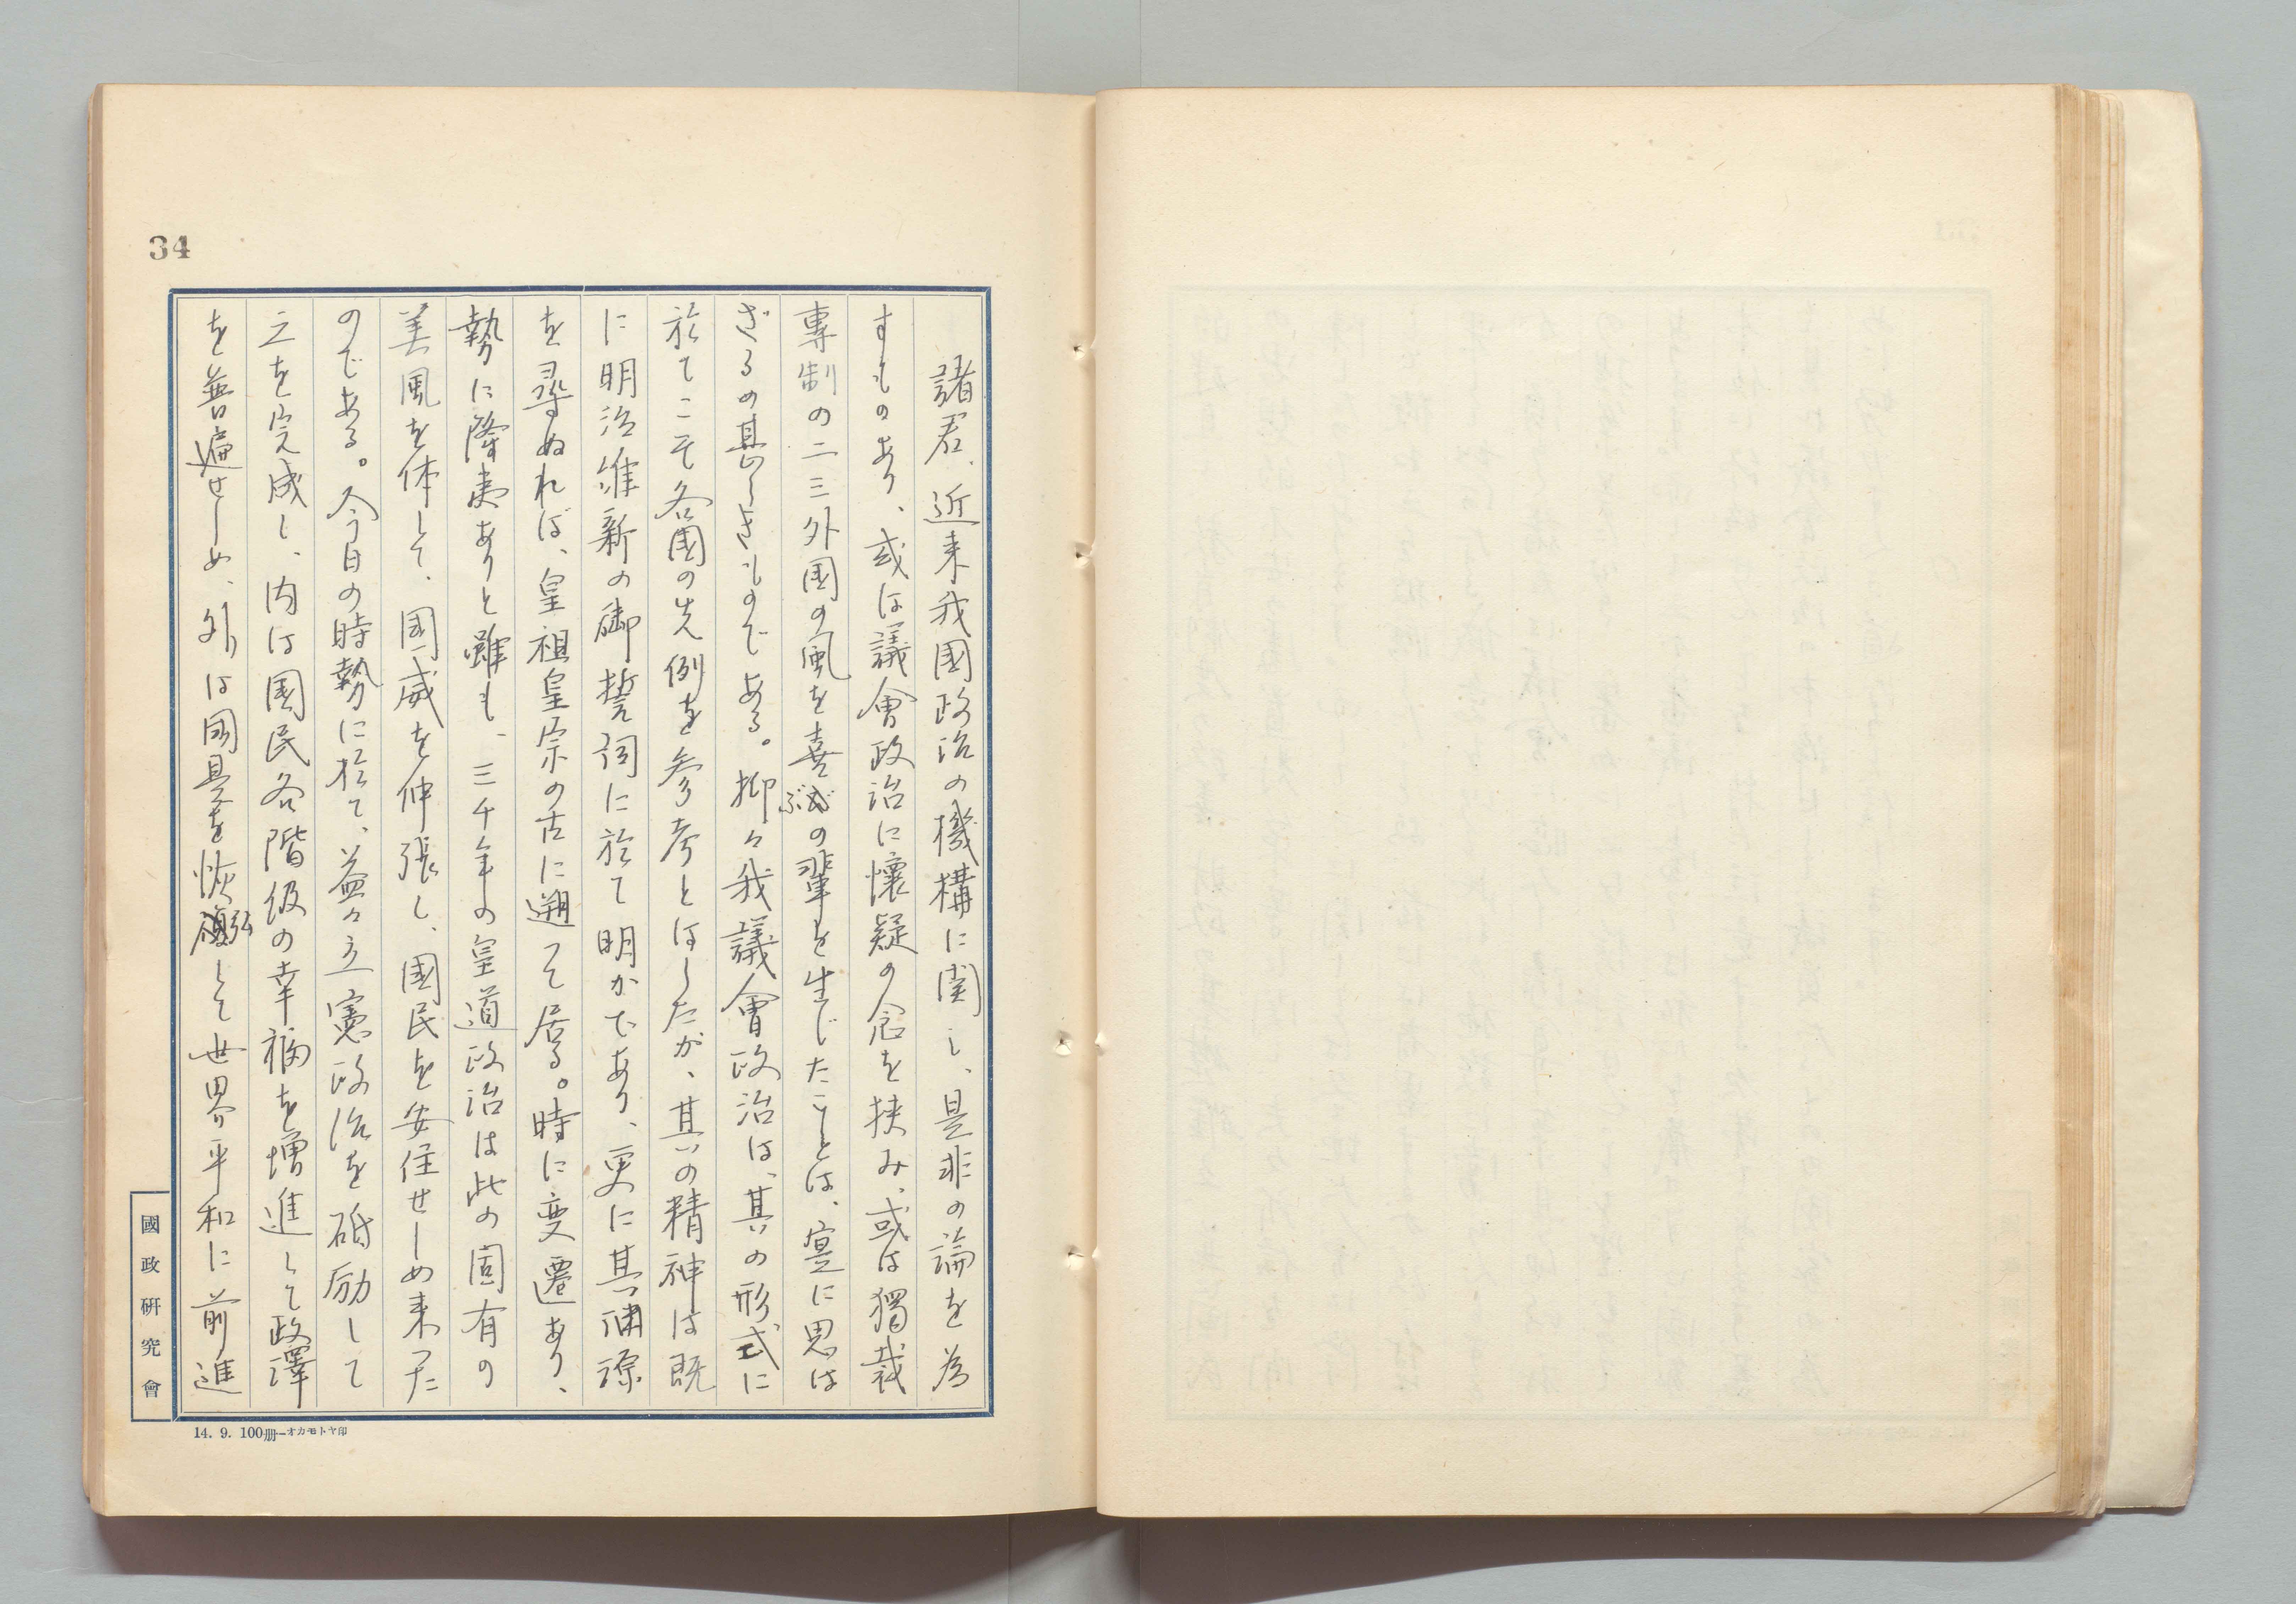 34
諸君、近来我國政治の機構に関し、是非の論を為
すものあり、或は議會政治に懐疑の念を挟み、或は獨裁
専制の二三外国の風を喜ぶの輩を生じたことは、寔に思は
ざるの甚しきものである。抑々我議會政治は、其の形式に
於てこそ各國の先例を参考とはしたが、其の精神は既
に明治維新の御誓詞に於て明かであり、更に其淵源
を尋ぬれば、皇祖皇宗の古に遡つて居る。時に変遷あり、
勢に隆夷ありと雖も、三千年の皇道政治は此の固有の
美風を体して、国威を伸張し、國民を安住せしめ来つた
のである。今日の時勢に於て、益々立憲政治を砥励して
之を完成し、内は國民各階級の幸福を増進して政澤
を普遍せしめ、外は國是を恢弘して世界平和に前進
國政研究會
14. 9. 100册—オカモトヤ印